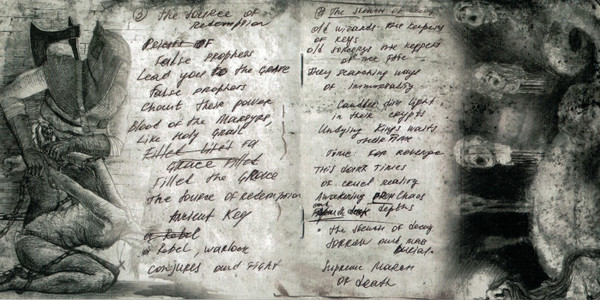 ② The Source of
Redemption
False prophers
Lead you to the Grave
False prophers
Chant their power
Blood of the Martyrs,
Like Holy Grail
Filled the Grace
The source of redemption
Ancient Key
of Rebel
of Rebel, warlock
conjures and FIGHT
The stench of
old wizards. the keepers
of keys
old sorcerys the keppers
of the Gate
They searching ways
of immorality
Candles dim light
in their crypts
Undying Kings waits
their time
Time for revenge
This dark times
of cruel reality
Awakening from Chaos
and depths
The stench of decay
Sorrow and mass
burial
Supreme Makers
of death